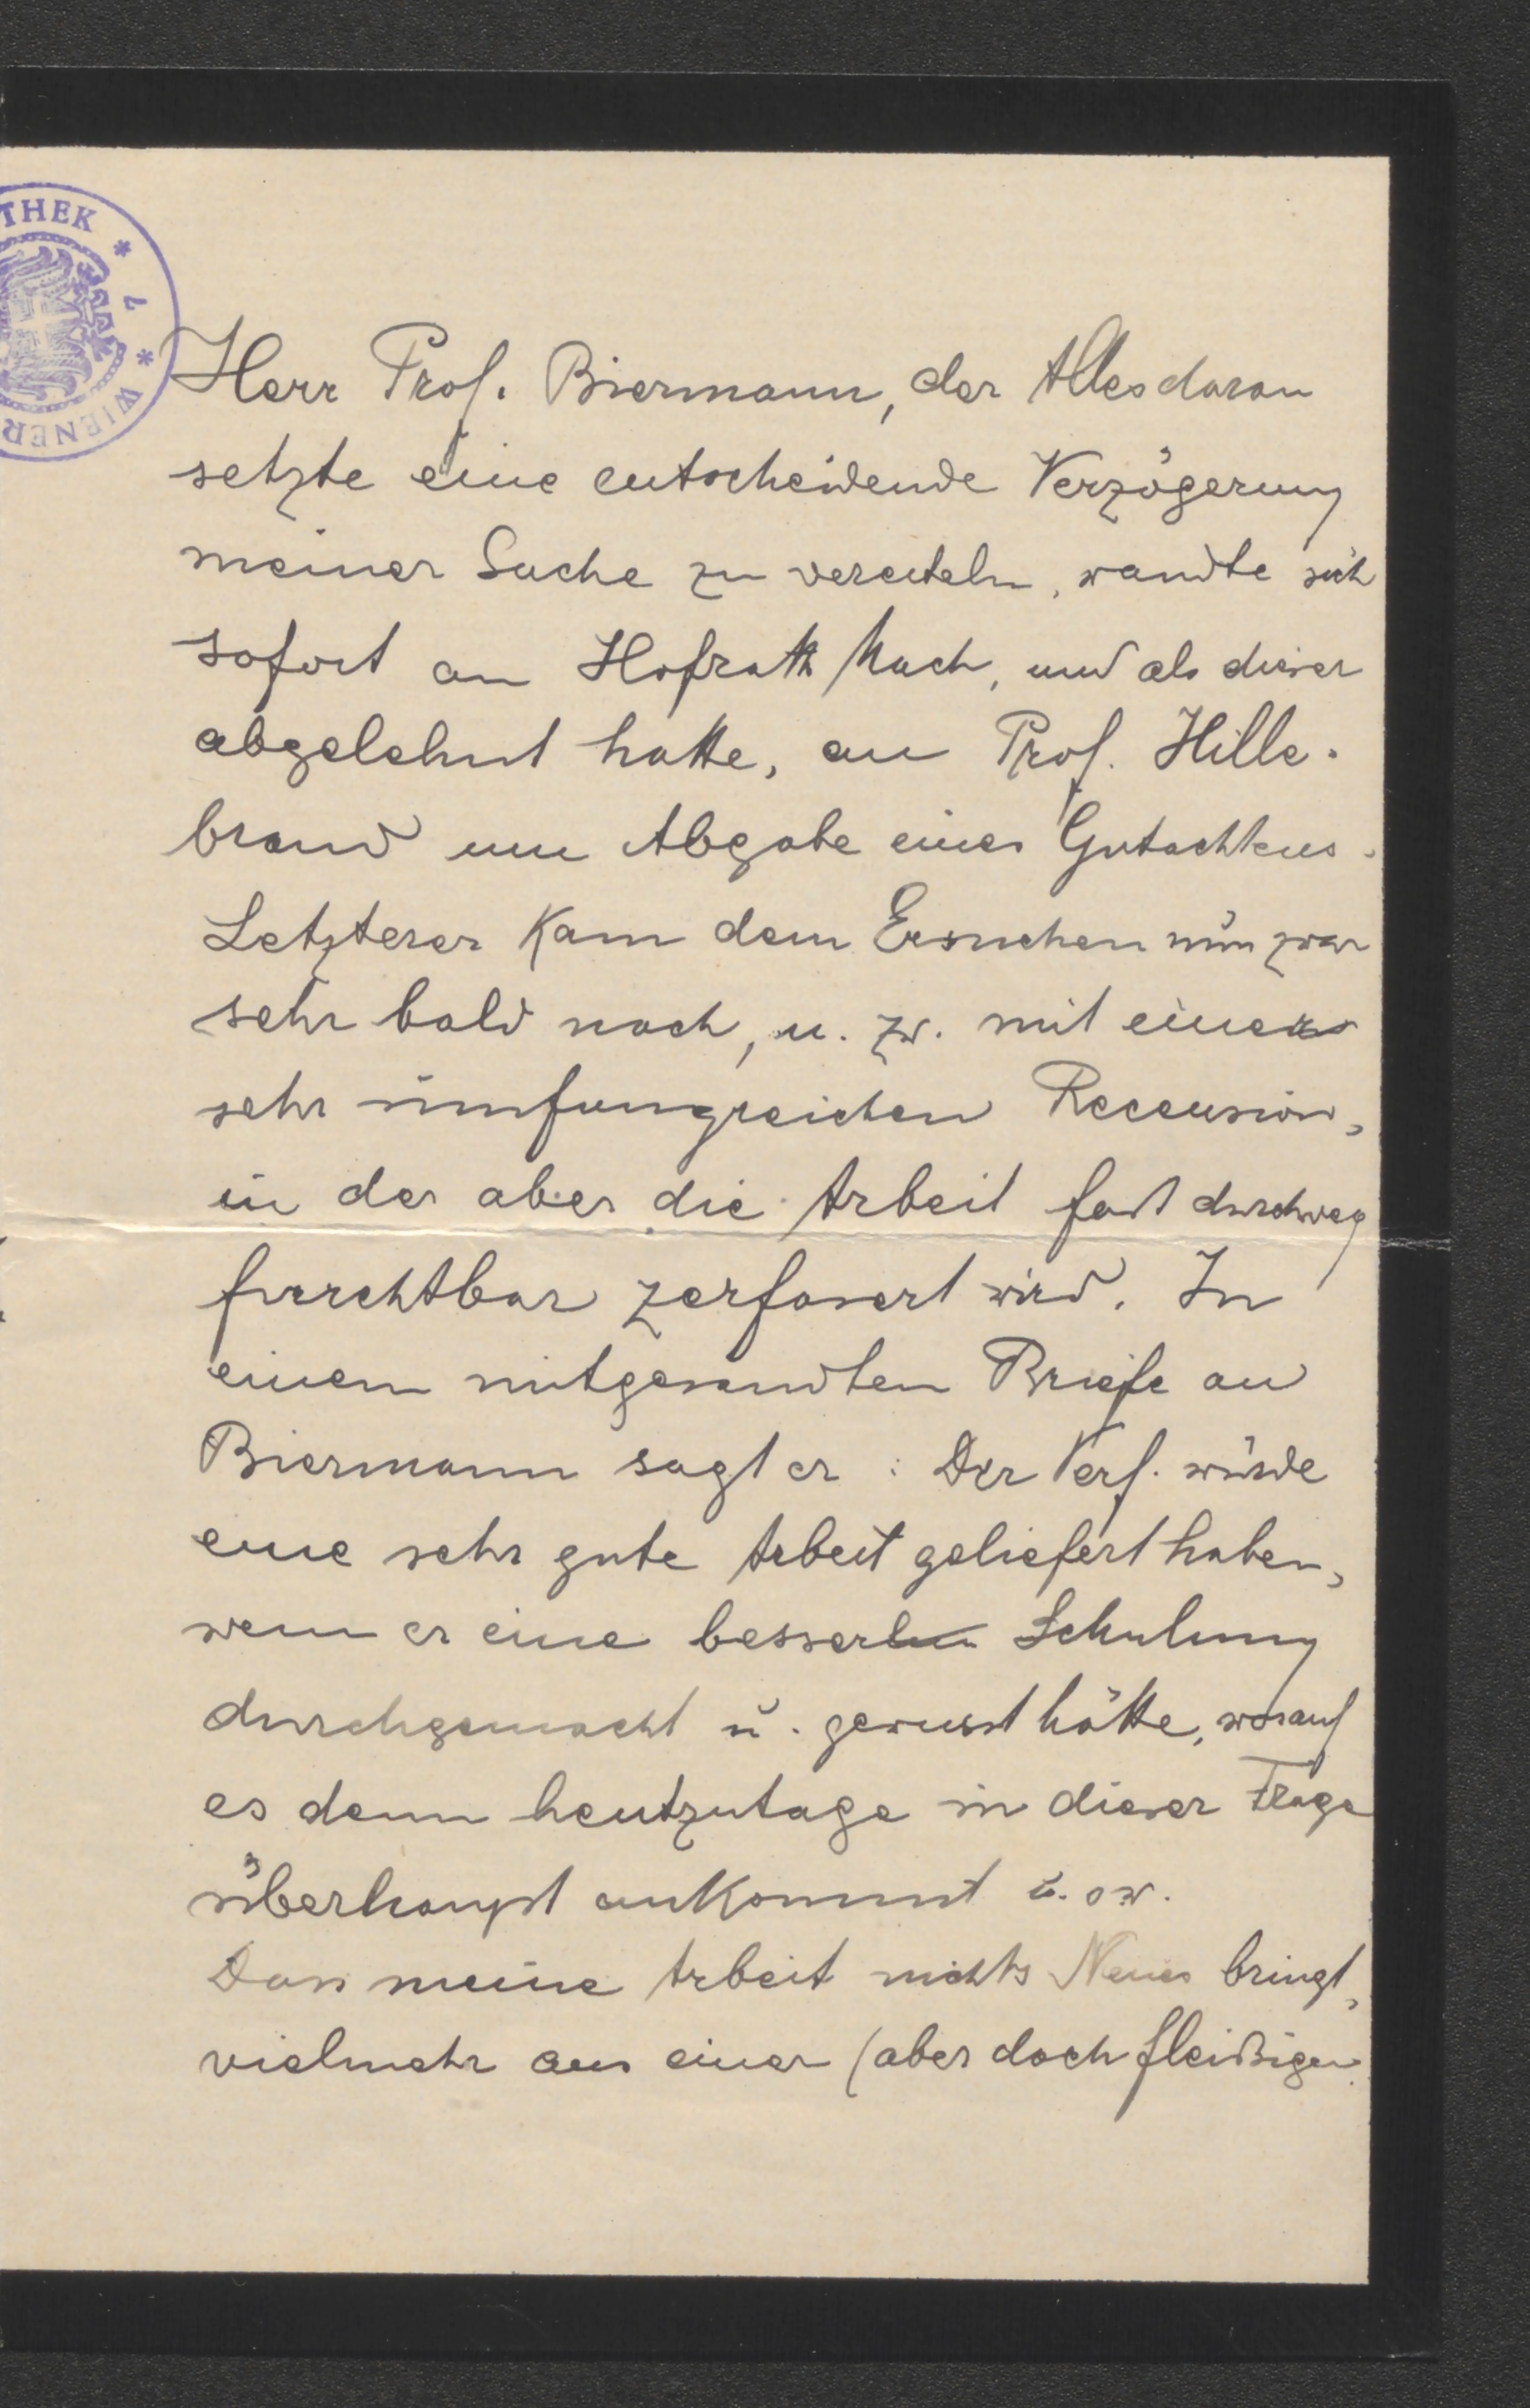 THEK * 7 * WIENER
Herr Prof. Biermann, der Alles daran
setzte eine entscheidende Verzögerung
meiner Sache zu vereiteln, wandte sich
sofort an Hofrath Mach, und als dieser
abgelehnt hatte, an Prof. Hille-
brand um Abgabe eines Gutachtens.
Letzterer kam dem Ersuchen nun zwar
sehr bald nach, u. zw. mit einer
sehr umfangreichen Recension,
in der aber die Arbeit fast durchweg
furchtbar zerfasert wird. In
einem mitgesandten Briefe an
Biermann sagt er: Der Verf. würde
eine sehr gute Arbeit geliefert haben,
wenn er eine bessere Schulung
durchgemacht u. gewusst hätte, worauf
es denn heutzutage in dieser Frage
überhaupt ankommt u. sw.
Dass meine Arbeit nichts Neues bringt,
vielmehr aus einer (aber doch fleißigen